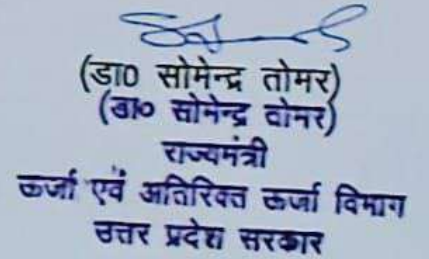 (डा0 सोमेन्द्र तोमर)
(डा० सोमेन्द्र तोमर)
राज्यमंत्री
ऊर्जा एवं अतिरिक्त ऊर्जा विभाग
उत्तर प्रदेश सरकार